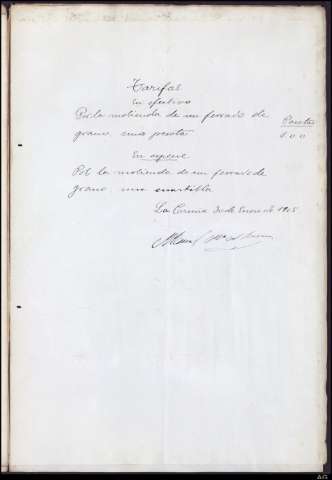 Tarifas
En efectivo
Por la molienda de un ferrado de Pesetas
grano una peseta 1 00
En especie
Por la molienda de un ferrado de
grano una cuartilla
La Coruña 30 de Enero de 1905
Manuel Mª
AG